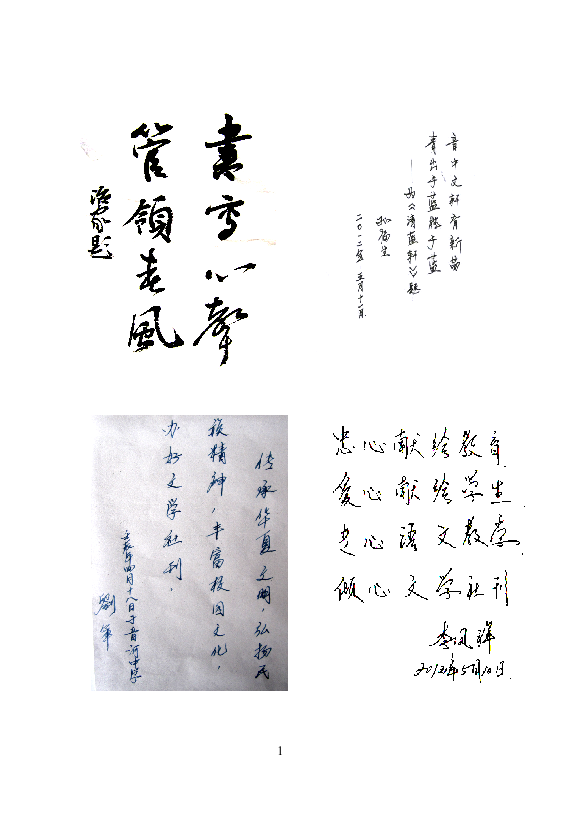 书写心声
管领春风
题
音中文轩有新苗
青出于蓝胜于蓝
——为《清蓝轩》题
二〇一二年五月十一日
传承华夏文明，弘扬民
族精神，丰富校园文化，
办好文学社刊。
壬辰年四月十八日于音河中学
劉军
忠心献给教育
爱心献给学生
专心语文教学
倾心文学社刊
李凤祥
2012年5月10日.
1